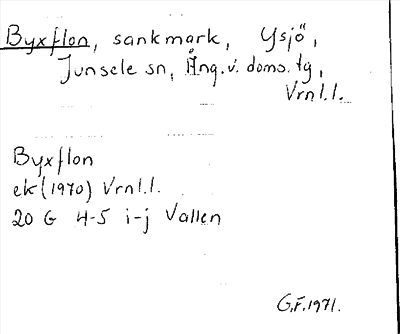 Byxflon, sankmark, Ysjö,
Junsele sn, Ång. v. doms. tg,
Vrnl.l.
Byxflon
ek (1970) Vrnl.l.
20 G 4-5 i-j Vallen
G.F. 1971.